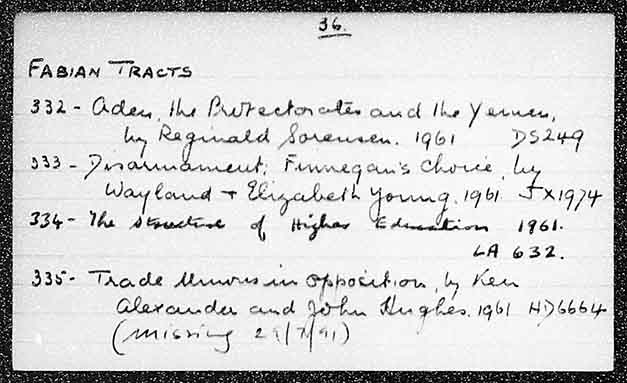 36.
FABIAN TRACTS
332 - Aden, the Protectorates and the Yemen,
by Reginald Sorensen. 1961 DS249
333 - Disarmament: Finnegan's Choice, by
Wayland + Elizabeth Young. 1961 JX1974
334 - The structure of Higher Education 1961.
LA 632.
335 - Trade Unions in opposition, by Ken
Alexander and John Hughes. 1961 HD6664
(missing 29/7/91)